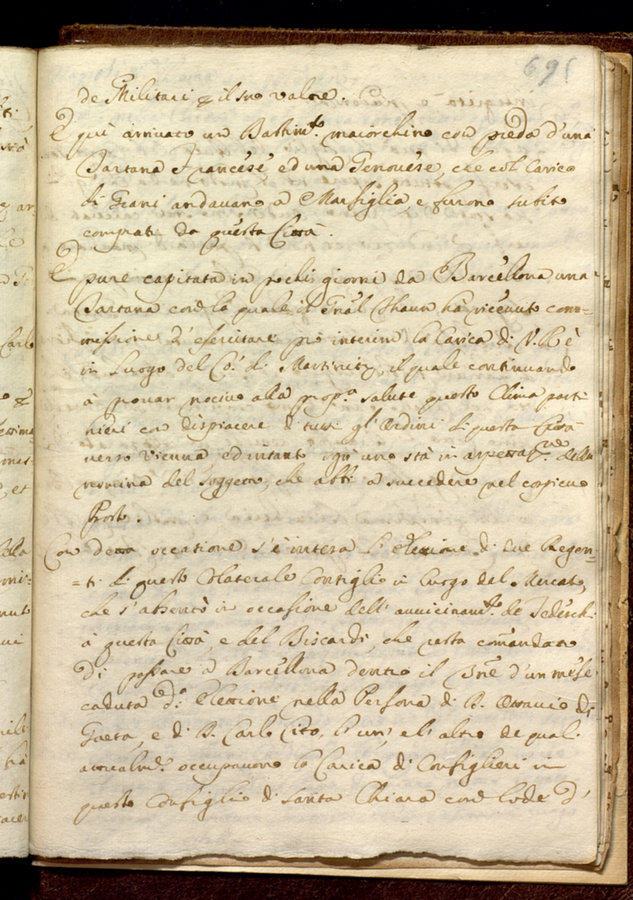 695
de Militari, e il suo valore.
È quì arrivato un Bastim.to maiorchino con preda d'una
Tartana Francese, ed una Genovese, che col carico
di Grani andavano à Marsiglia, e furono subito
comprate da questa Città.
È pure capitata in pochi giorni da Barcellona una
Tartana con la quale il Gnãl Thaun hà ricevuto com=
missione d'esercitare pro interim la Carica di V. Rè
in luogo del Co: di Martinitz, il quale continuando
à provar nocivo alla prop.a salute questo Clima part
hieri con dispiacere di tutti gl'Ordini di questa Città
verso Vienna, ed intanto ogn'uno stà in aspettat.ne della
nomina del Soggetto, che abbi a succedere nel cospicuo
Posto.
Con detta occasione s'è intesa l'Elettione di due Regen=
=ti di questo Colaterale Consiglio in luogo del Mercato,
che s'absentò in occasione dell'avvicinam.to de Tedeschi
à questa Città, e del Biscardi, che resta comandato
di passare à Barcellona dentro il Tnẽ d'un mese
caduta d.a Elettione nella Persona di D. Ottavio di
Gaeta, e di D. Carlo Cito, l'un, e l'altro de quali
attualm.te occupavano la Carica di Consiglieri in
questo Consiglio di Santa Chiara con lode d'